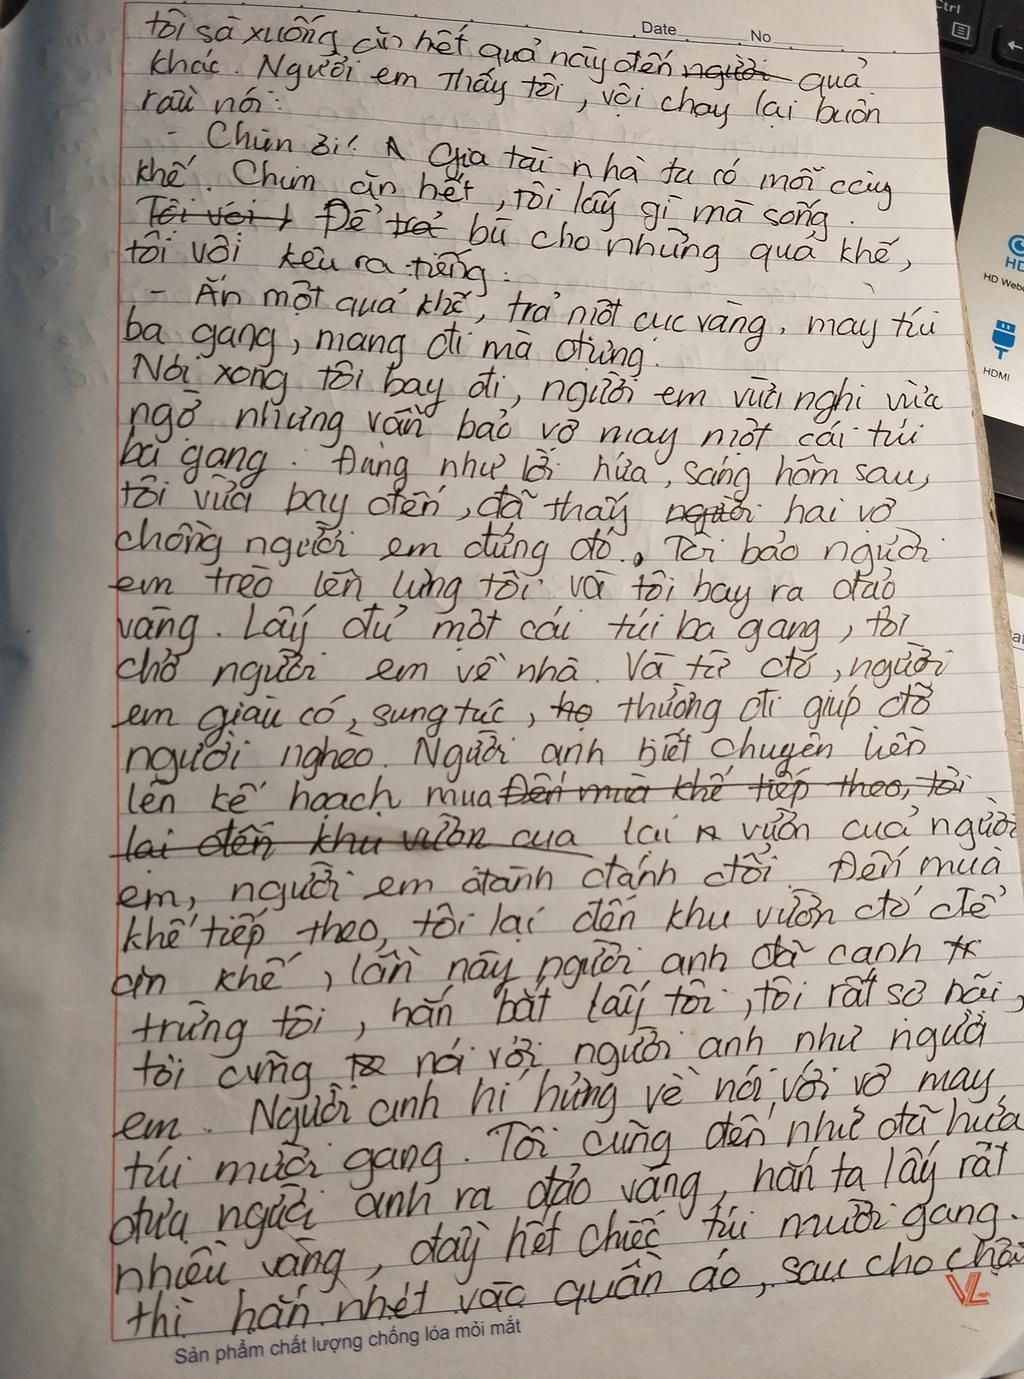 Date No
tôi sà xuống ăn hết quả này đến người quả
khác. Người em thấy tôi, vội chạy lại buồn
rầu nói:
- Chim ơi! Gia tài nhà ta có mỗi cây
khế. Chim ăn hết, tôi lấy gì mà sống.
Tôi với Để trả bù cho những quả khế,
tôi vội kêu ra tiếng:
- Ăn một quả khế, trả một cục vàng, may túi
ba gang, mang đi mà đựng.
Nói xong tôi bay đi, người em vừa nghi vừa
ngờ nhưng vẫn bảo vợ may một cái túi
ba gang. Đúng như lời hứa, sáng hôm sau,
tôi vừa bay đến, đã thấy người hai vợ
chồng người em đứng đó. Tôi bảo người
em trèo lên lưng tôi và tôi bay ra đảo
vàng. Lấy đủ một cái túi ba gang, tôi
chở người em về nhà. Và từ đó, người
em giàu có, sung túc, họ thường đi giúp đỡ
người nghèo. Người anh biết chuyện liền
lên kế hoạch mua Đến mùa khế tiếp theo, tôi
lại đến khu vườn của lại vườn của người
em, người em đành đánh đổi. Đến mùa
khế tiếp theo, tôi lại đến khu vườn đó để
ăn khế, lần này người anh đã canh
trừng tôi, hắn bắt lấy tôi, tôi rất sợ hãi,
tôi cũng nói với người anh như người
em. Người anh hí hửng về nói với vợ may
túi mười gang. Tôi cũng đến như đã hứa
đưa người anh ra đảo vàng, hắn ta lấy rất
nhiều vàng, đầy hết chiếc túi mười gang.
thì hắn nhét vào quần áo, sau cho
Sản phẩm chất lượng chống lóa mỏi mắt
VL
Ctrl
HD
HD Web
HDMI